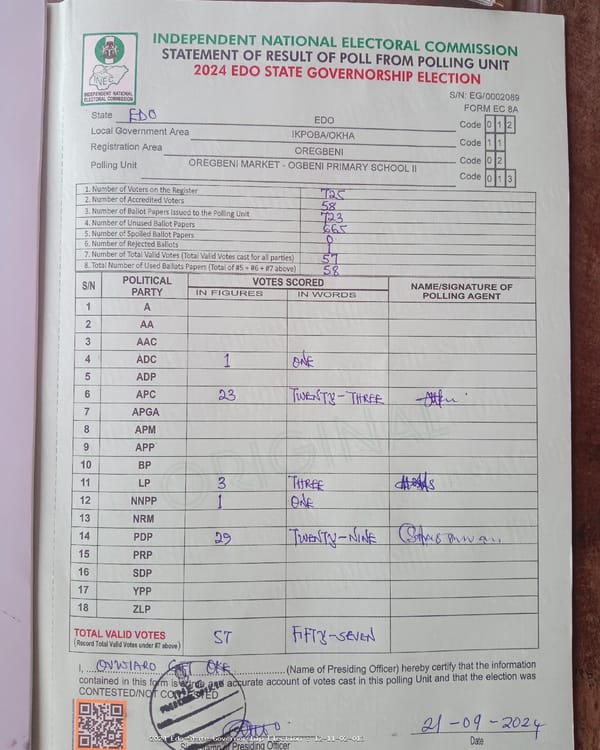 INDEPENDENT NATIONAL ELECTORAL COMMISSION
STATEMENT OF RESULT OF POLL FROM POLLING UNIT
2024 EDO STATE GOVERNORSHIP ELECTION
INEC
INDEPENDENT NATIONAL ELECTORAL COMMISSION
S/N: EG/0002089
FORM EC 8A
State EDO EDO Code 0 1 2
Local Government Area IKPOBA/OKHA Code 1 1
Registration Area OREGBENI Code 0 2
Polling Unit OREGBENI MARKET - OGBENI PRIMARY SCHOOL II Code 0 1 3
1. Number of Voters on the Register 725
2. Number of Accredited Voters 58
3. Number of Ballot Papers Issued to the Polling Unit 723
4. Number of Unused Ballot Papers 665
5. Number of Spoiled Ballot Papers 0
6. Number of Rejected Ballots 1
7. Number of Total Valid Votes (Total Valid Votes cast for all parties) 57
8. Total Number of Used Ballots Papers (Total of #5 + #6 + #7 above) 58
S/N POLITICAL PARTY VOTES SCORED NAME/SIGNATURE OF POLLING AGENT
IN FIGURES IN WORDS
1 A
2 AA
3 AAC
4 ADC 1 ONE
5 ADP
6 APC 23 TWENTY-THREE
7 APGA
8 APM
9 APP
10 BP
11 LP 3 THREE
12 NNPP 1 ONE
13 NRM
14 PDP 29 TWENTY-NINE
15 PRP
16 SDP
17 YPP
18 ZLP
ORIGINAL
TOTAL VALID VOTES 57 FIFTY-SEVEN
(Record Total Valid Votes under #7 above)
I, OKE (Name of Presiding Officer) hereby certify that the information
contained in this form is accurate account of votes cast in this polling Unit and that the election was
CONTESTED/NOT CONTESTED
21-09-2024
Presiding Officer Date